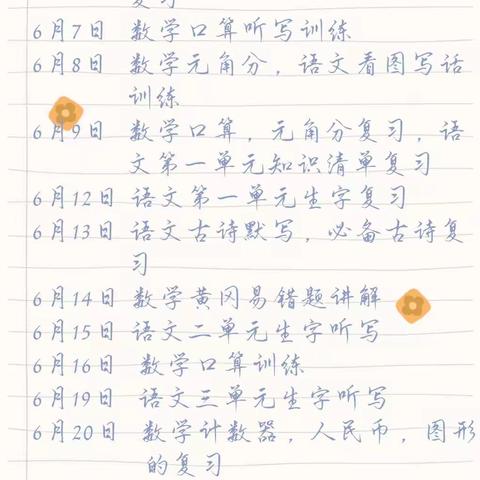 复习
6月7日 数学口算听写训练
6月8日 数学元角分，语文看图写话
训练
6月9日 数学口算，元角分复习，语
文第一单元知识清单复习
6月12日 语文第一单元生字复习
6月13日 语文古诗默写，必备古诗复
习
6月14日 数学黄冈易错题讲解
6月15日 语文二单元生字听写
6月16日 数学口算训练
6月19日 语文三单元生字听写
6月20日 数学计数器，人民币，图形
的复习